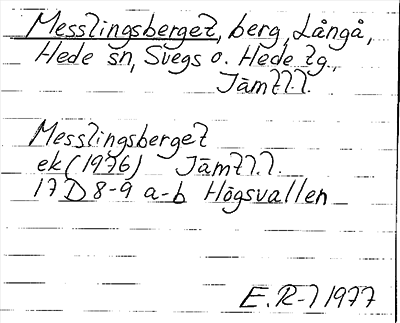 Messlingsberget, berg, Långå,
Hede sn, Svegs o. Hede tg.,
Jämtl.l.
Messlingsberget
ek (1976) Jämtl.l.
17D 8-9 a-b Högsvallen
E.R-l 1977